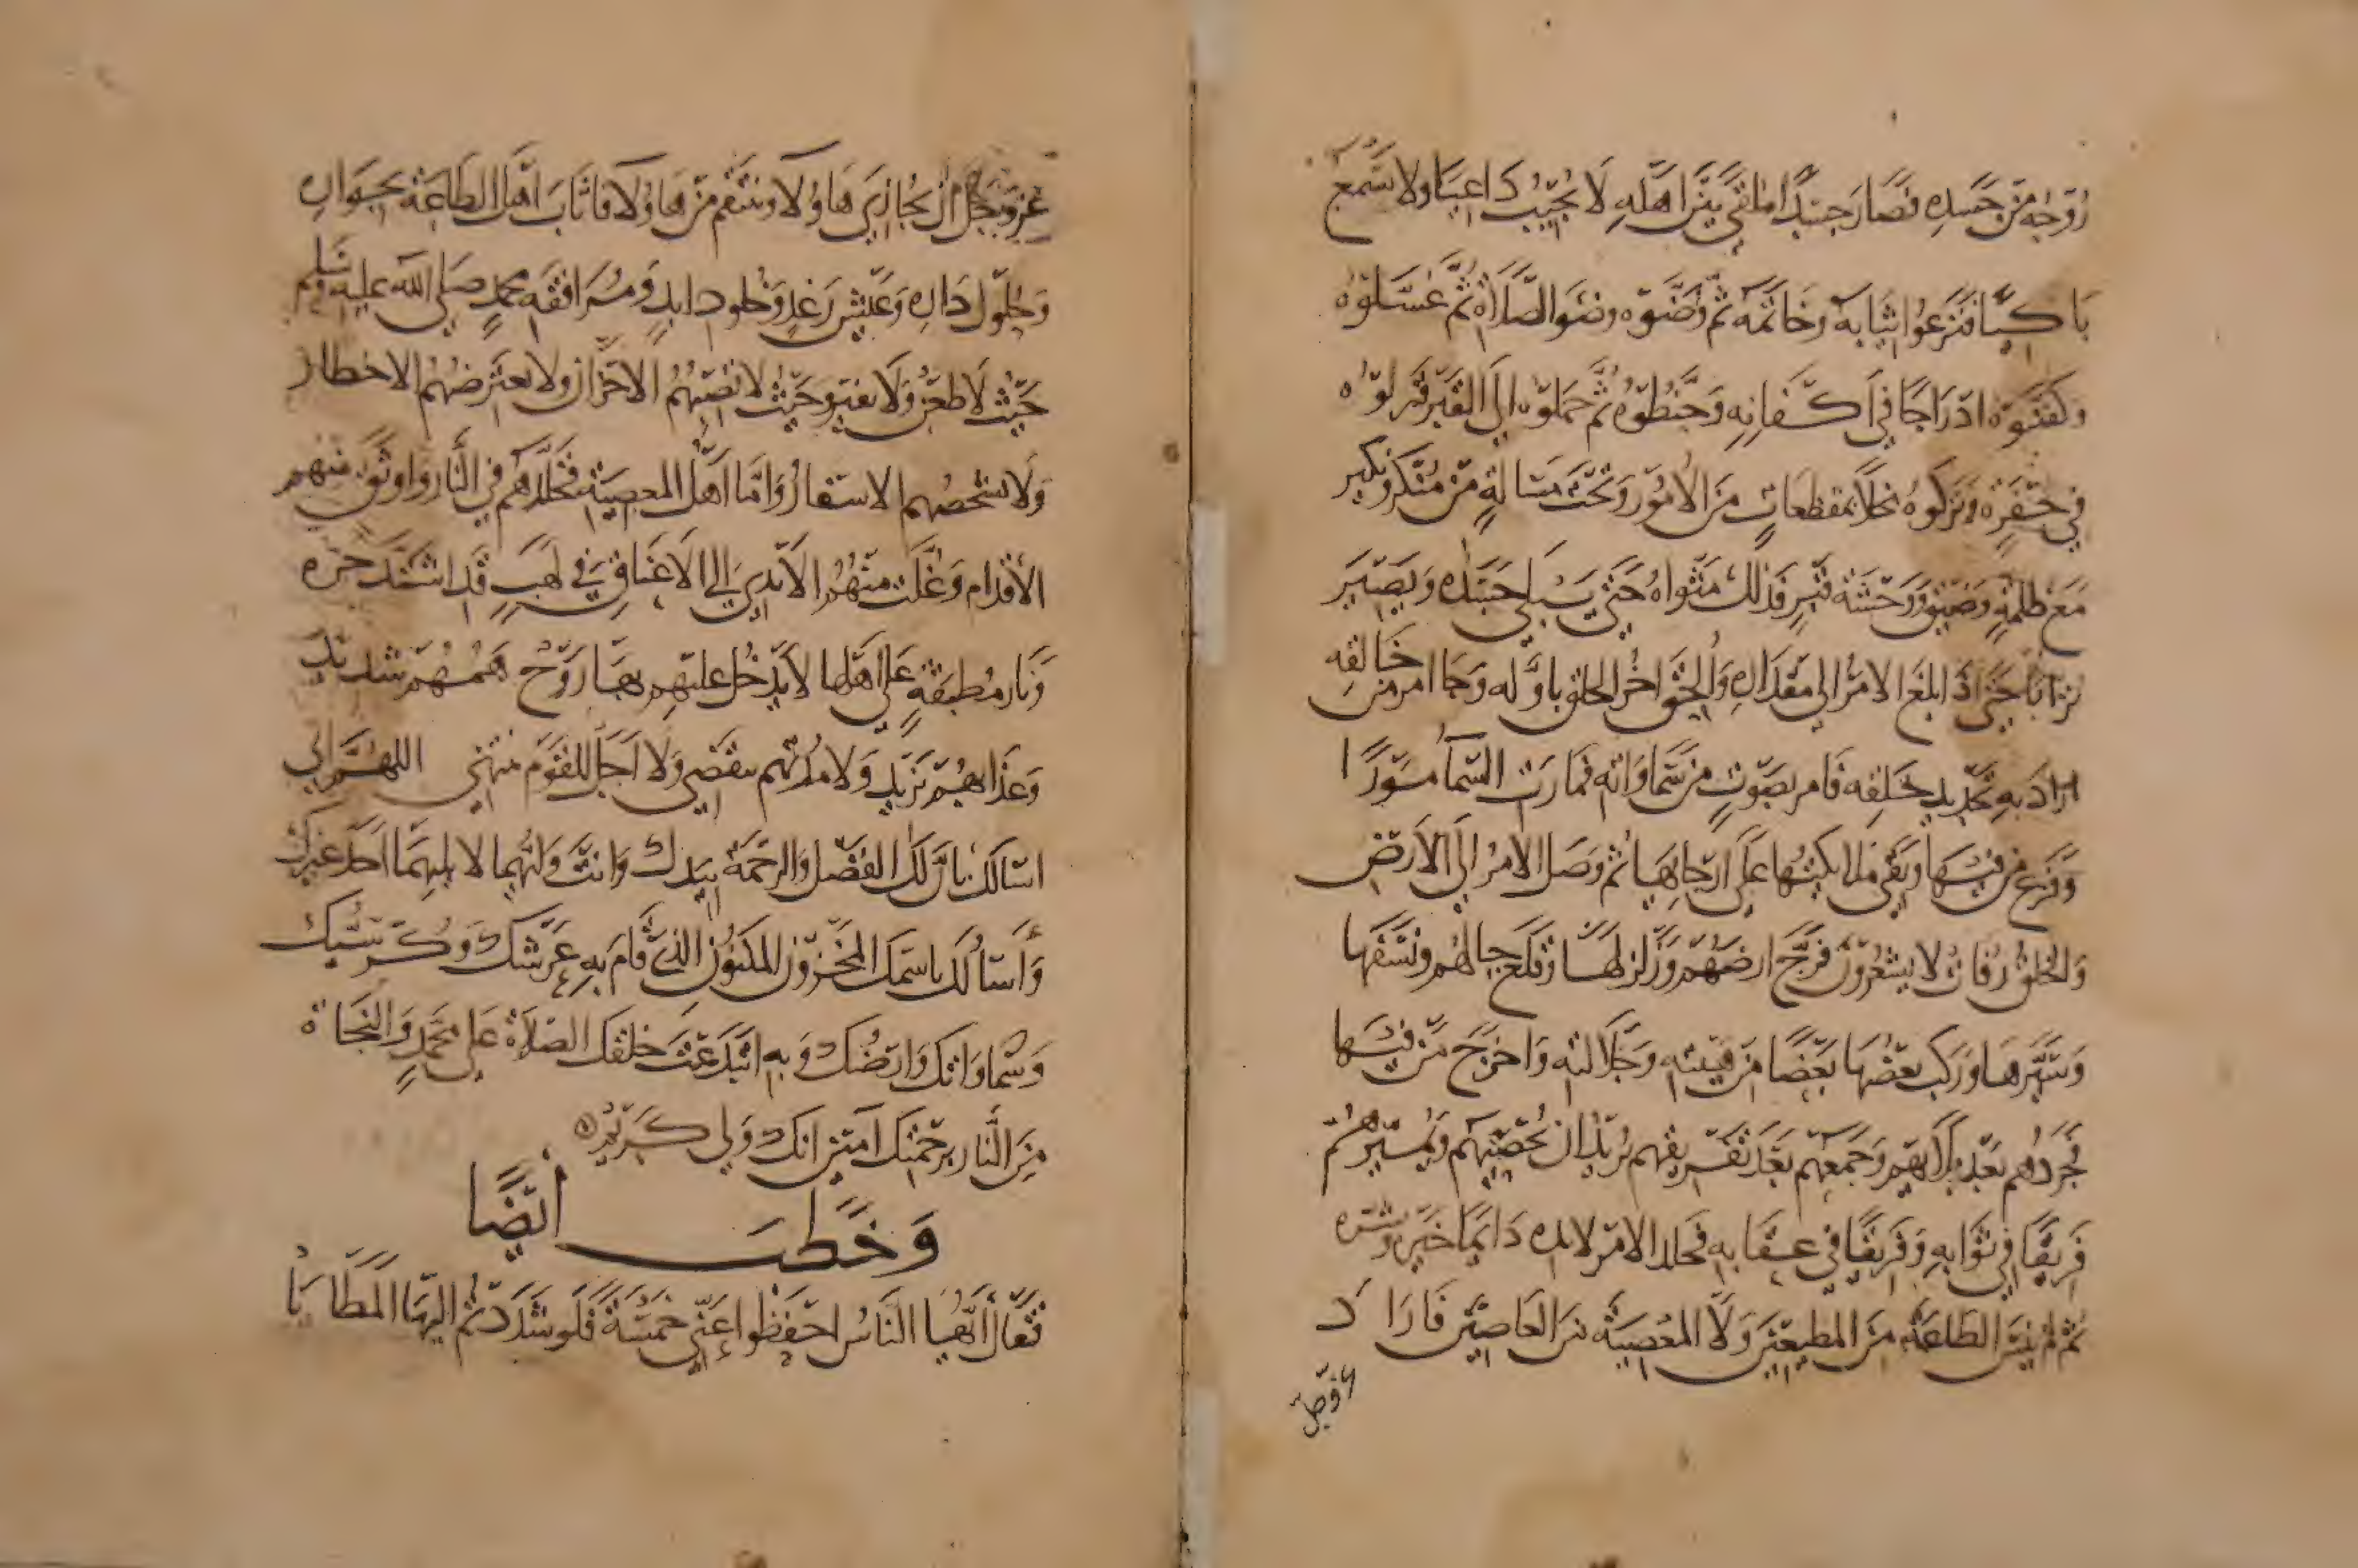 روحه من جسده فصار جسدا ملقى بين اهله لا يجيب داعيا ولا سمع
باكيا فنزعوا ثيابه وخاتمه ثم وضوه وضو الصلاة ثم غسلوه
وكفنوه ادراجا في اكفانه وحنطوه ثم حملوه الى القبر فدلوه
في حفرة وتركوه مخلا بمفظعات من الامور وتحت مسالة من منكر ونكير
مع ظلمة وضيق ووحشة قبر فذلك مثواه حتى يبلى جسده ويصير
ترابا حتى اذا بلغ الامر الى مقداره والحق اخر الخلق باوله وجا امر من خالقه
اراد به تجديد خلقه فامر بصوت من سماواته فمارت السما مورا
وفزع من فيها وبقي ملائكتها على ارجايها ثم وصل الامر الى الارض
والخلق رفات لا يشعرون فرج ارضهم وزلزلها وقلع جبالهم ونسفها
وسيرها وركب بعضها بعضا من هيبته وجلالته واخرج من فيها
فجردهم بعد بلايهم وجمعهم بعد تفريقهم يريد ان يحصيهم ويميزهم
فريقا في ثوابه وفريقا في عقابه فخلد الامر لابده دايما خيره وشره
ثم لم ينس الطاعة من المطيعين ولا المعصية من العاصين فاراد
عز وجل ان يجازي هاولا وينتقم من هاولا فاثاب اهل الطاعة بجواره
وحلول داره وعيش رغد وخلود ابد ومرافقه محمد صلى الله عليه وسلم
حيث لا ظعن ولا تغير وحيث لا تصيبهم الاحزان ولا تعترضهم الاخطار
ولا تشخصهم الاسفار واما اهل المعصية فخلدهم في النار واوثق منهم
الاقدام وغلت منهم الايدي الى الاعناق في لهب قد اشتد حره
ونار مطبقة على اهلها لا يدخل عليهم بها روح همهم شديد
وعذابهم يزيد ولا مدتهم تنقضي ولا اجل للقوم منتهي اللهم اني
اسالك بان لك الفضل والرحمة بيدك وانت وليهما لا يليهما احد غيرك
واسالك باسمك المخزون المكنون الذي قام به عرشك وكرسيك
وسماواتك وارضك وبه ابتدعت خلقك الصلاة على محمد والنجاة
من النار برحمتك امين انك ولي كريم
وخطب ايضا
فقال ايها الناس احفظوا عني خمسة فلو شددتم اليها المطايا